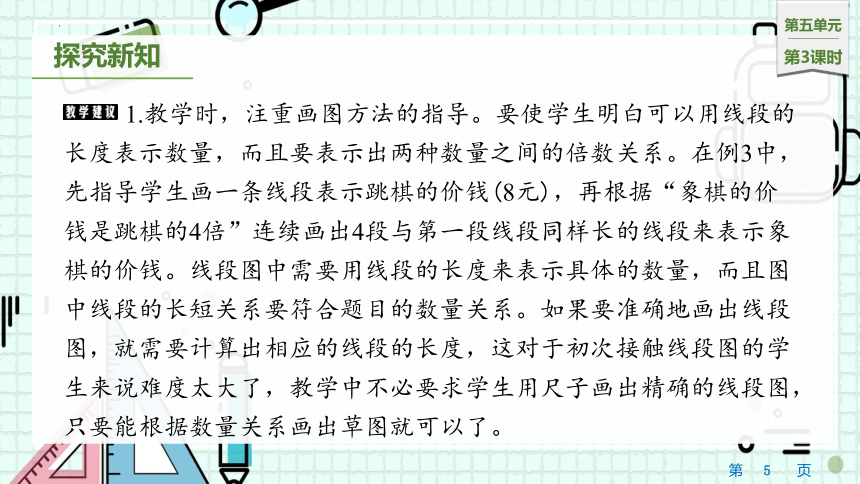 第五单元
第3课时
探究新知
教学建议 1.教学时，注重画图方法的指导。要使学生明白可以用线段的
长度表示数量，而且要表示出两种数量之间的倍数关系。在例3中，
先指导学生画一条线段表示跳棋的价钱(8元)，再根据“象棋的价
钱是跳棋的4倍”连续画出4段与第一段线段同样长的线段来表示象
棋的价钱。线段图中需要用线段的长度来表示具体的数量，而且图
中线段的长短关系要符合题目的数量关系。如果要准确地画出线段
图，就需要计算出相应的线段的长度，这对于初次接触线段图的学
生来说难度太大了，教学中不必要求学生用尺子画出精确的线段图，
只要能根据数量关系画出草图就可以了。
第 5 页